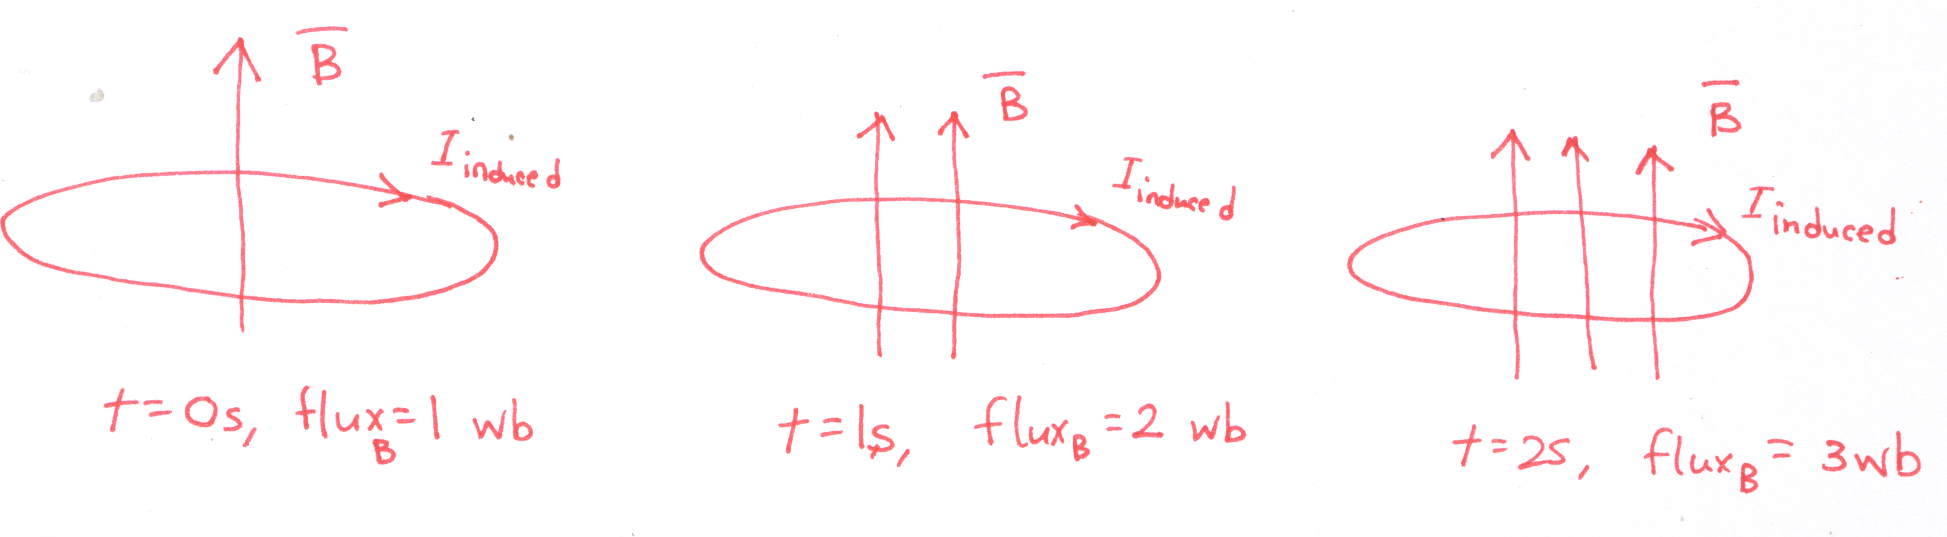 B
I induced
t=0s, flux_B=1 wb
B
I induced
t=1s, flux_B=2 wb
B
I induced
t=2s, flux_B=3wb